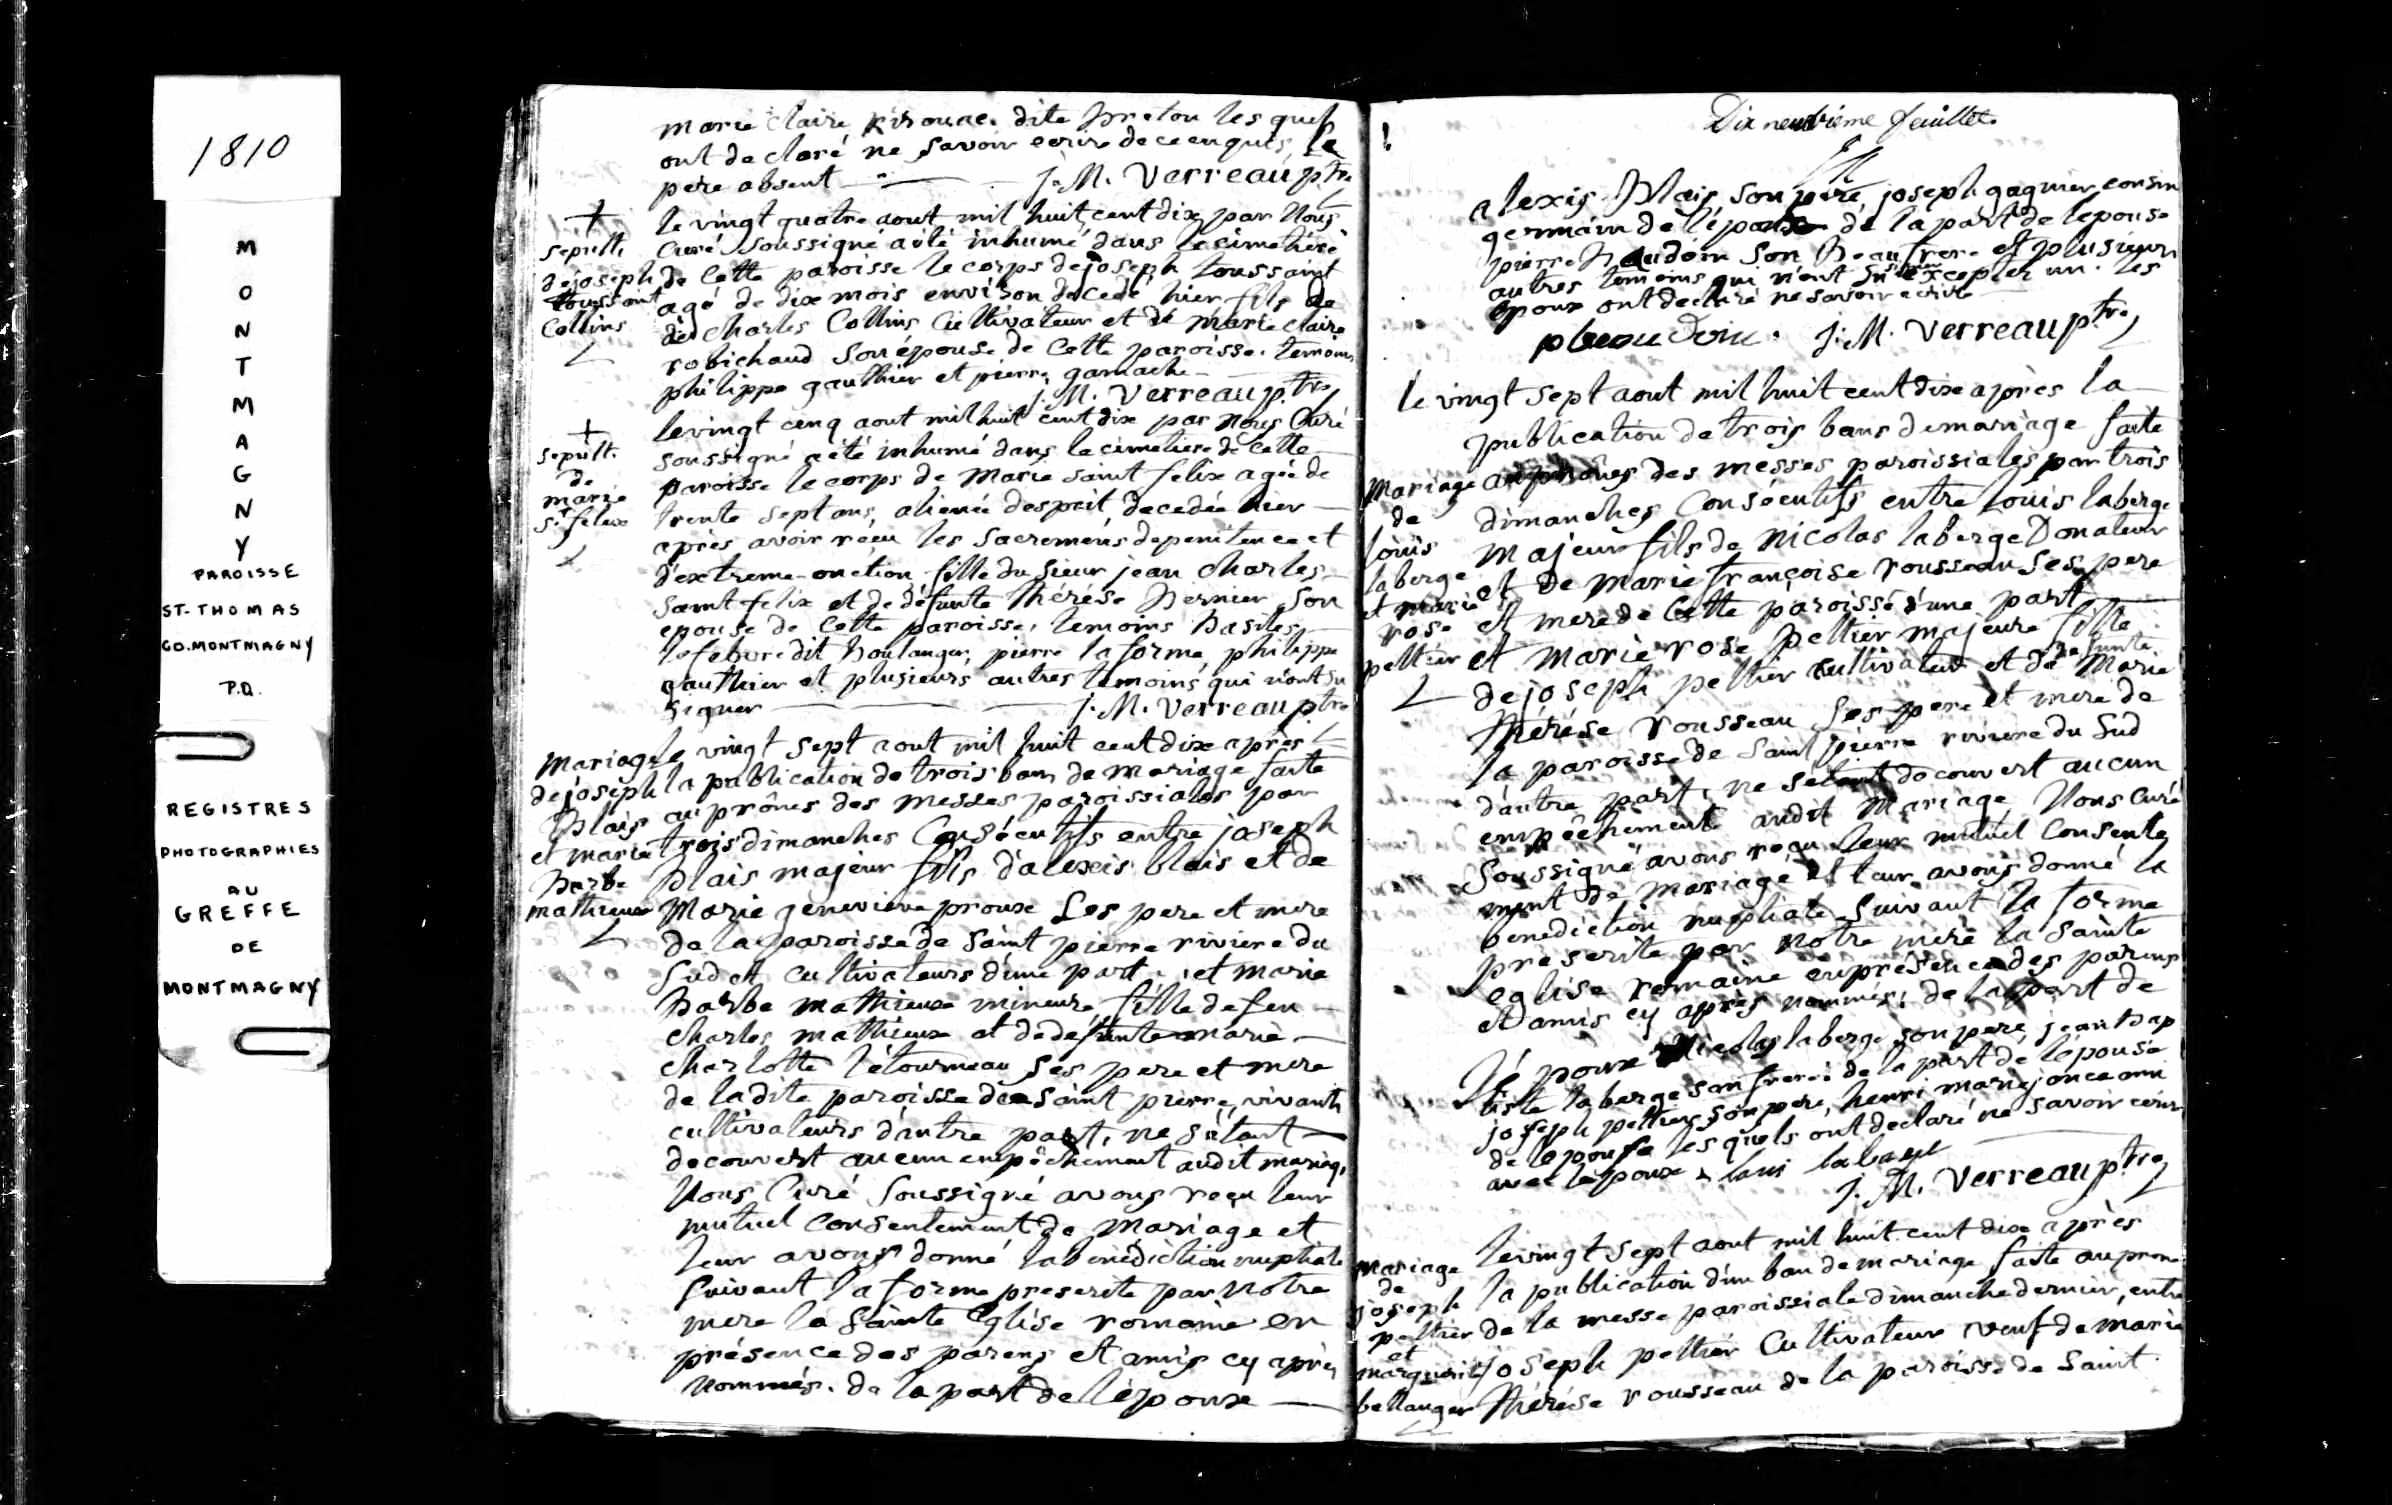 1810
MONTMAGNY
PAROISSE
ST-THOMAS
CO. MONTMAGNY
P.Q.
REGISTRES
PHOTOGRAPHIES
AU
GREFFE
DE
MONTMAGNY
marie claire Kirouac dite breton les quels
ont declaré ne savoir ecrire de ce enquis, le
pere absent J. M. Verreau ptre
+
sepult.
de joseph
toussaint
Collins
le vingt quatre aout mil huit cent dix par Nous
Curé soussigné a été inhumé dans le cimetiére
de Cette paroisse le corps de joseph toussaint
agé de dix mois environ decedé hier fils de
de Charles Collins Cultivateur et de marie claire
robichaud son épouse de Cette paroisse. temoins
philippe gauthier et pierre gamache
J. M. Verreau ptre
+
sepult.
de
marie
St felix
le vingt cinq aout mil huit cent dix par Nous Curé
soussigné a été inhumé dans le cimetiere de cette
paroisse le corps de Marie saint felix agée de
trente sept ans, alienée desprit, decedée hier
après avoir reçu les Sacremens de penitence et
d'extreme-onction fille du Sieur jean Charles
Saint felix et de défunte thérése bernier Son
epouse de Cette paroisse, temoins basiles
lefebvre dit boulanger, pierre laforme, philippe
gauthier et plusieurs autres temoins qui n'ont su
signer J. M. Verreau ptre
Mariage
de joseph
Blais
et marie
barbe
mathieux
le vingt sept aout mil huit cent dix après
la publication de trois bans de mariage faite
au prônes des messes paroissiales par
trois dimanches Consécutifs entre joseph
blais majeur fils d'alexis blais et de
Marie genevieve proux Ses pere et mere
de la paroisse de saint pierre riviere du
Sud et cultivateurs d'une part, et marie
barbe mathieux mineure, fille de feu
Charles mathieux et de défunte marie
Charlotte létourneau ses pere et mere
de ladite paroisse de saint pierre, vivants
cultivateurs d'autre part, ne s'étant
decouvert aucun empêchement audit mariage,
Nous Curé Soussigné avons reçu leur
mutuel consentement de mariage et
leur avons donné la bénédiction nuptiale
Suivant la forme prescrite par Notre
mere la Sainte Eglise romaine en
présence des parens et amis cy après
Nommés. de la part de l'époux
Dix neuvième feuillet
alexis blais son pere, joseph gagnier cousin
germain de l'épouse de la part de lepouse
pierre baudoin Son beau frere et plusieurs
autres temoins qui n'ont su excepter un. les
epoux ont declaré ne savoir ecrire
J. M. Verreau ptre
Mariage
de
louis
laberge
et marie
rose
peltier
le vingt sept aout mil huit cent dix après la
publication de trois bans de mariage faite
au prônes des messes paroissiales par trois
dimanches Consécutifs entre louis laberge
majeur fils de Nicolas laberge Donateur
et de marie françoise rousseau ses pere
et mere de Cette paroisse d'une part
et marie rose peltier majeure fille
de joseph peltier cultivateur et de defunte Marie
thérése rousseau Ses pere et mere de
la paroisse de saint pierre riviere du Sud
d'autre part, ne setant decouvert aucun
empêchement audit mariage, Nous Curé
Soussigné avons reçu leur mutuel Consente
ment de mariage et leur avons donné la
benediction nuptiale Suivant la forme
prescrite par Notre mere la Sainte
eglise romaine en présence des parens
et amis cy après nommés. de la part de
l'époux Nicolas laberge son pere, jean bap
tiste laberge son frere. de la part de l'épouse
joseph peltier son pere, henri
de lepouse les quels ont declaré ne savoir ecrire
avec l'époux
J. M. Verreau ptre
Mariage
de
joseph
peltier
et
marguerite
bellanger
le vingt sept aout mil huit cent dix après
la publication d'un ban de mariage faite au prone
de la messe paroissiale dimanche dernier, entre
joseph peltier Cultivateur veuf de marie
thérése rousseau de la paroisse de Saint